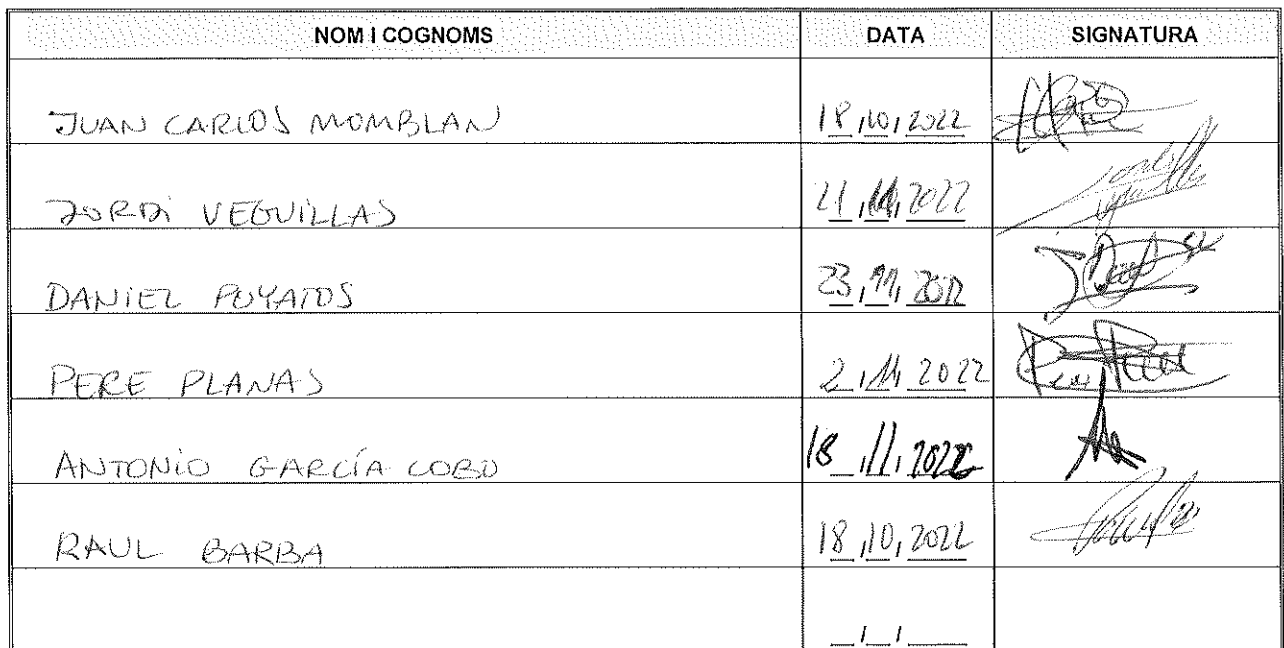 NOM I COGNOMS DATA SIGNATURA
JUAN CARLOS MOMBLAN 18/10/2022
JORDI VEGUILLAS 21/11/2022
DANIEL POYATOS 23/11/2022
PERE PLANAS 2/11/2022
ANTONIO GARCÍA COBO 18/11/2022
RAUL BARBA 18/10/2022